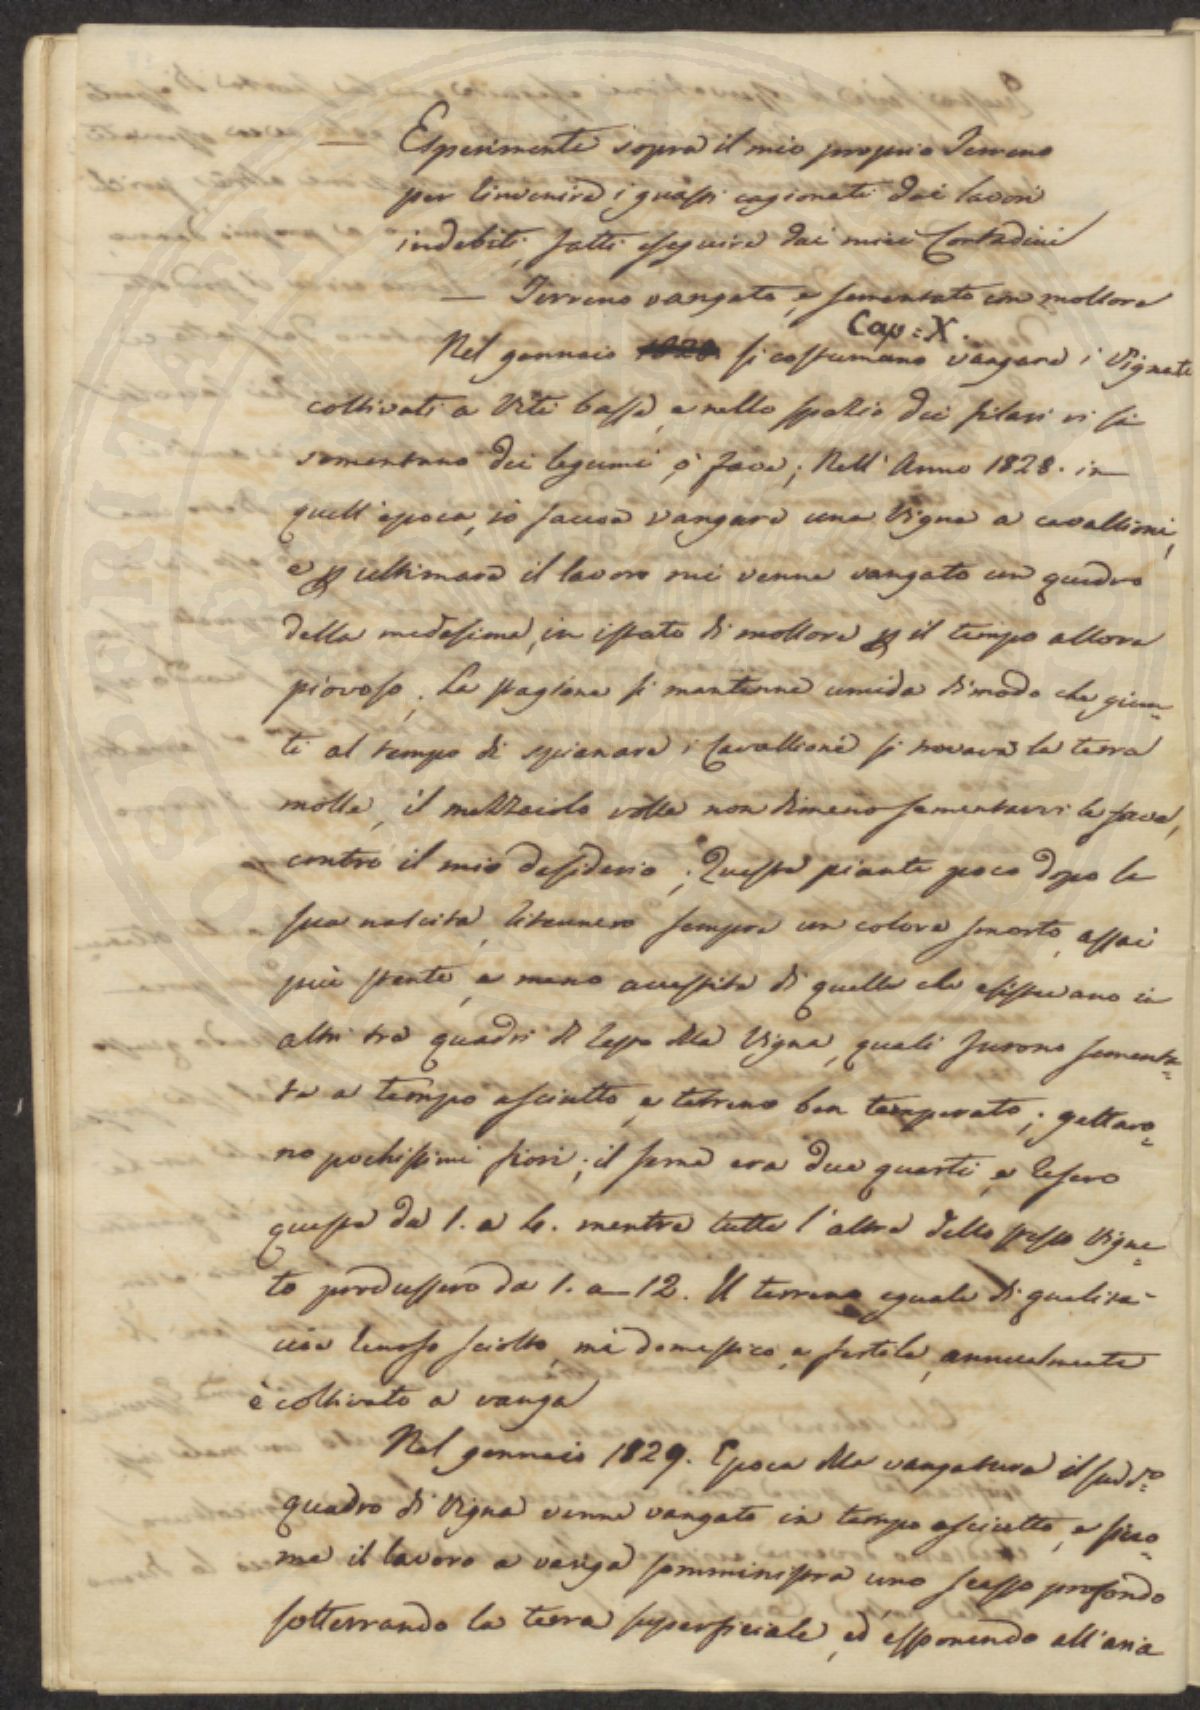 — Esperimenti sopra il mio proprio Terreno
per rinvenire i guasti cagionati dai lavori
indebiti, fatti eseguire dai miei Contadini
— Terreno vangato, e sementato con mollore
Cap: X.
Nel gennaio 1828 si costumano vangare i Vigneti
coltivati a Viti basse, e nello spazio dei filari vi si
sementano dei legumi, o fave; Nell' Anno 1828. in
quell'epoca, io faceva vangare una Vigna a cavallioni,
e p ultimare il lavoro mi venne vangato un quadro
della medesima, in istato di mollore p il tempo allora
piovoso. La stagione si mantenne umida dimodo che giun=
ti al tempo di spianare i Cavallioni si trovava la terra
molle, il mezzaiolo volle non dimeno sementarvi le fave,
contro il mio desiderio; Queste piante poco dopo la
sua nascita, ritennero sempre un colore smorto, assai
più stente, e meno accestite di quelle che esistevano in
altri tre quadri di resto della Vigna, quali furono sementa=
te a tempo asciutto, e terreno ben temperato; gettaro=
no pochissimi fiori; il seme era due quarti, e resero
queste da 1. a 4. mentre tutte l'altre dello stesso Vigne=
to produssero da 1. a 12. Il terreno eguale di qualità
cioè renoso sciolto, mà domestico, e fertile, annualmente
è coltivato a vanga
Nel gennaio 1829. Epoca della vangatura il sudd.o
quadro di Vigna venne vangato in tempo asciutto, e sico=
me il lavoro a vanga somministra uno scasso profondo
sotterrando la terra superficiale, ed esponendo all'aria